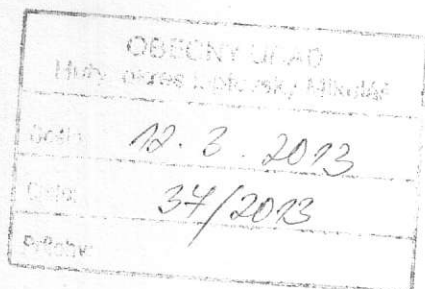 OBECNÝ ÚRAD
Huty, okres Liptovský Mikuláš
Došlo: 12. 3. 2013
Číslo: 37/2013
Prílohy: